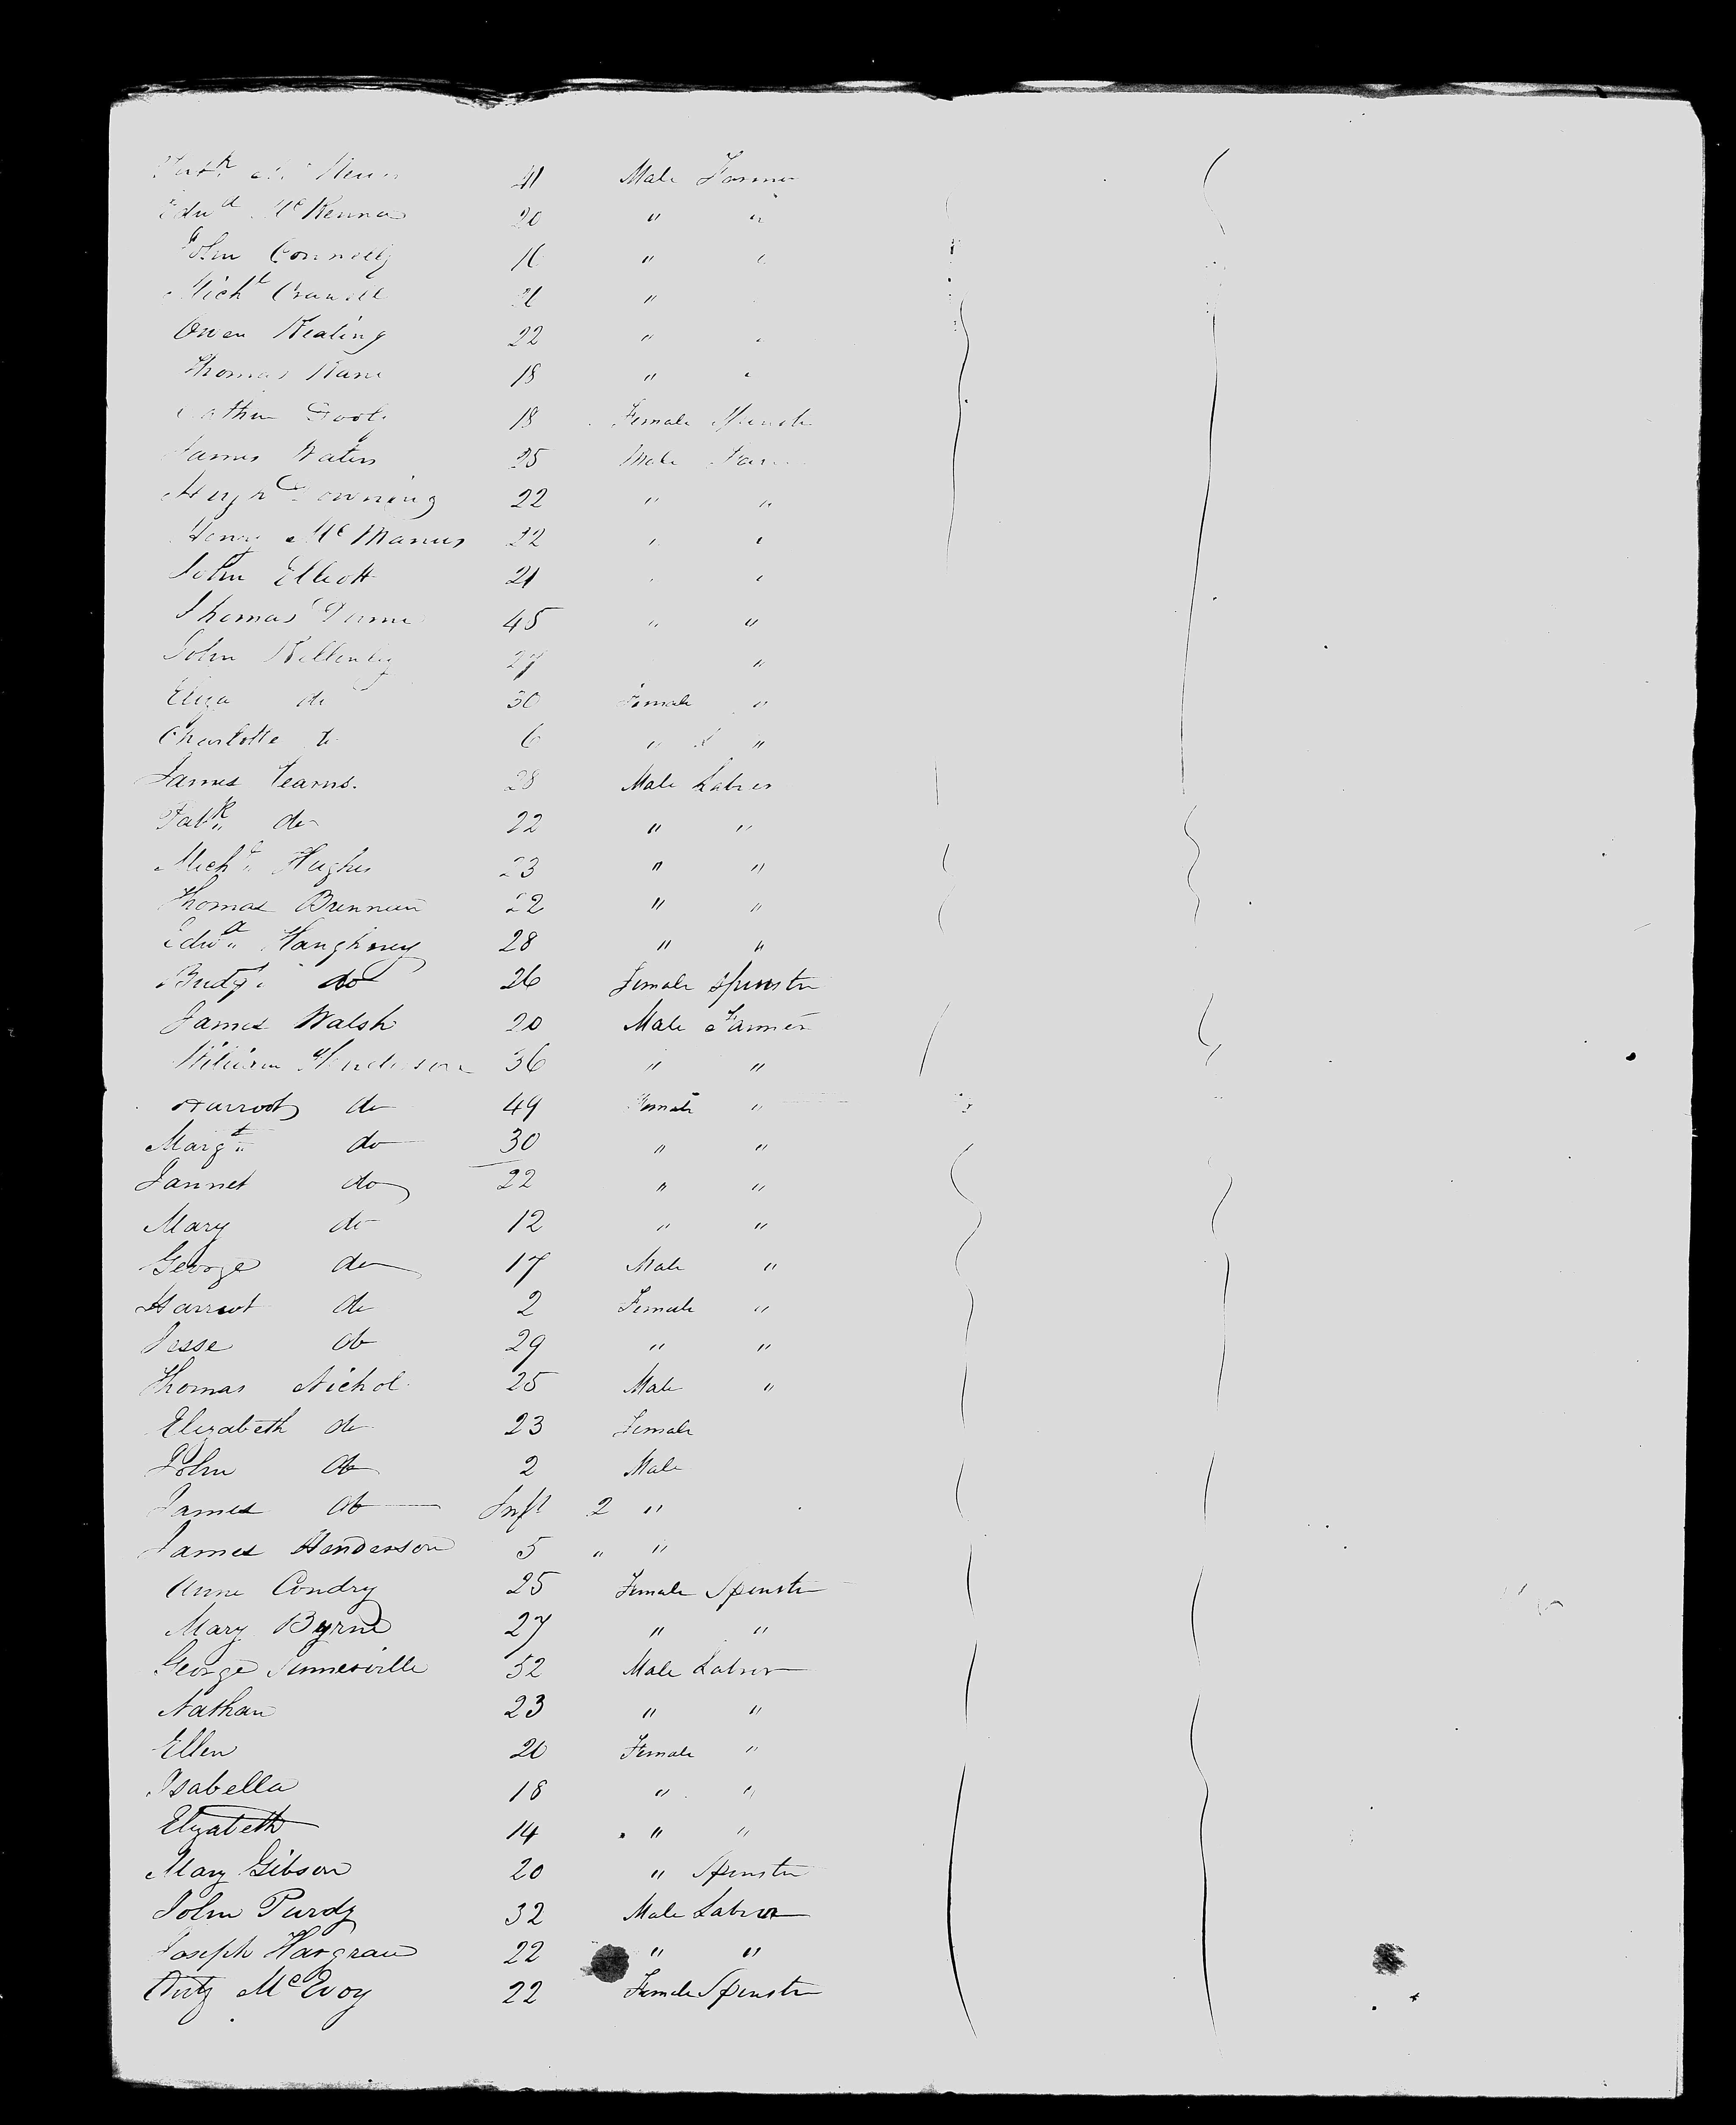 Patk 21 Male Farmer
Edwd McKenna 20 " "
John Connolly 16 " "
Michl 21 "
Owen Keating 22 " "
Thomas Kane 18 " "
18 Female Spinster
James Waters 25 Male Farmer
Hugh Downing 22 " "
Henry McManus 22 " "
John Elliott 21 " "
Thomas 45 " "
John 27 "
Eliza do 30 Female "
Charlotte do 6 " "
James Kearns. 28 Male Labrer
Patk do 22 " "
Michl Hughes 23 " "
Thomas Brennan 22 " "
Edwd Haughney 28 " "
Bridgt do 26 Female Spinster
James Walsh 20 Male Farmer
William Henderson 36 " "
Harroot do 49 Female "
Margt do 30 " "
Jannet do 22 " "
Mary do 12 " "
George do 17 Male "
Harriot do 2 Female "
Jesse do 29 " "
Thomas Nichol 25 Male "
Elizabeth do 23 Female
John do 2 Male
James do Inft 2 "
James Henderson 5 " "
Anne Condry 25 Female Spinster
Mary Byrne 27 " "
George Sumerville 52 Male Labrer
Nathan 23 " "
Ellen 20 Female "
Isabella 18 " "
Elizabeth 14 " "
Mary Gibson 20 " Spinster
John Purdy 32 Male Labrer
Joseph Hargrave 22 " "
McEvoy 22 Female Spinster